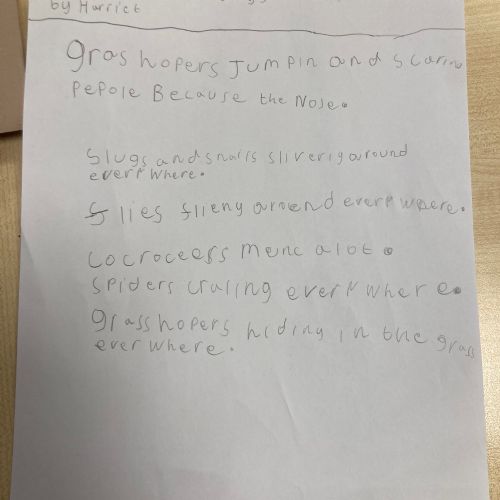 by Harriet
grashopers Jumpin and scaring
PePole Because the Nose.
Slugs and snails sliverig around
every where.
flies flieng around every where.
cocroceers menc alot.
spiders craling every where.
grasshopers hiding in the grass
ever where.